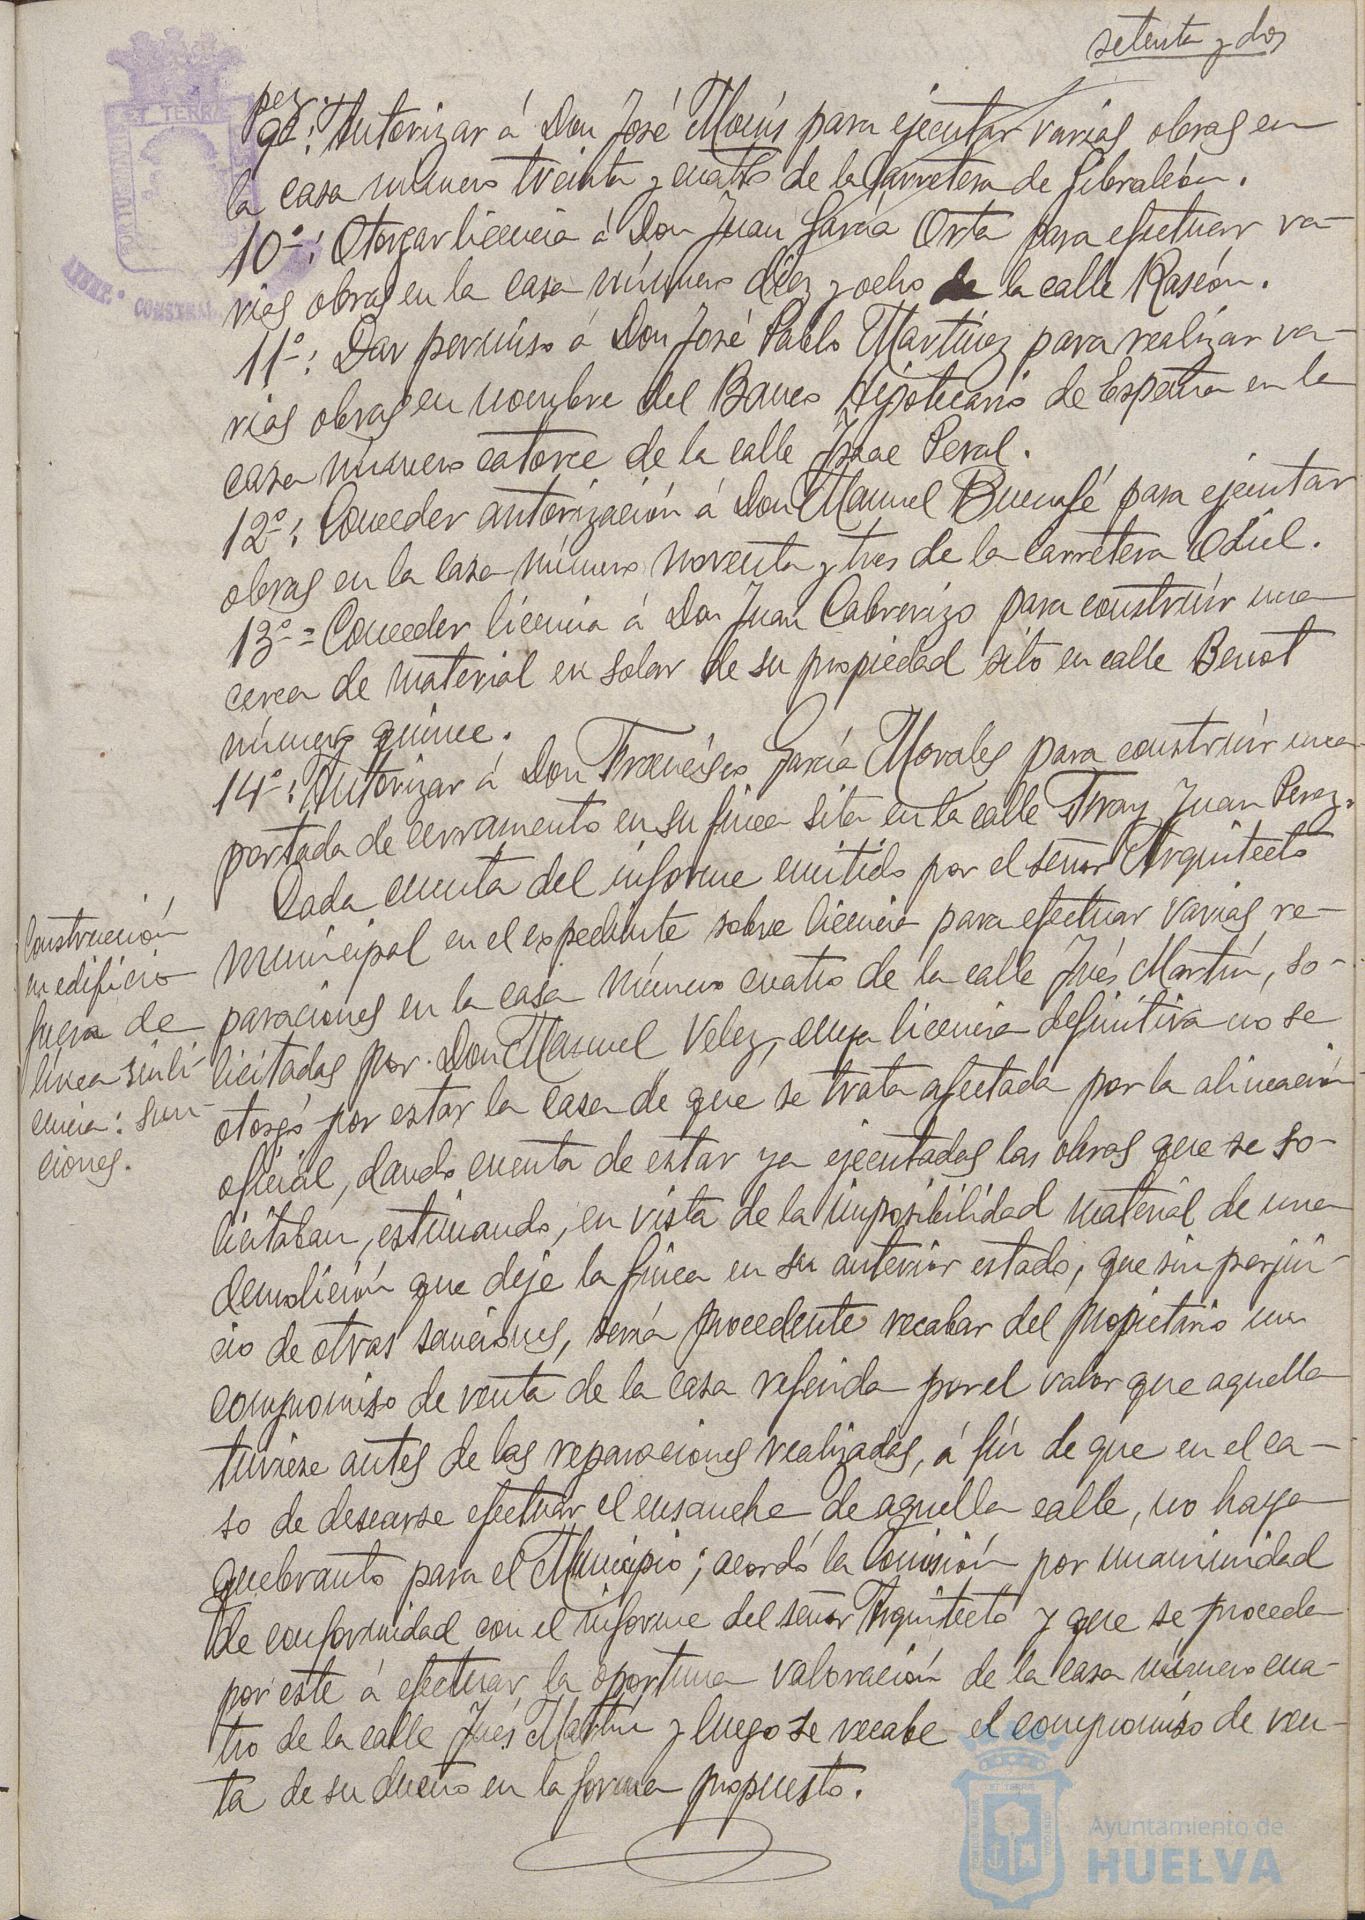 setenta y dos
pez.
9º: Autorizar á Don José Macís para ejecutar varias obras en
la casa número treinta y cuatro de la Carretera de Gibraleón.
10º: Otorgar licencia á Don Juan García Orta para efectuar va-
rias obras en la casa número diez y ocho de la calle Rascón.
11º: Dar permiso á Don José Pablo Martínez para realizar va-
rias obras en nombre del Banco Hipotecario de España en la
casa número catorce de la calle Isaac Peral.
12º: Conceder autorización á Don Manuel Buenafé para ejecutar
obras en la casa número noventa y tres de la carretera Odiel.
13º = Conceder licencia á Don Juan Cabrerizo para construír una
cerca de material en solar de su propiedad sito en calle Benot
número quince.
14º: Autorizar á Don Francisco García Morales para construír una
portada de cerramento en su finca sita en la calle Fray Juan Perez.
Dada cuenta del informe emitido por el señor Arquitecto
municipal en el expediente sobre licencia para efectuar varias re-
paraciones en la casa número cuatro de la calle Inés Martín, so-
licitadas por Don Manuel Velez, cuya licencia definitiva no se
otorgó por estar la casa de que se trata afectada por la alineación
oficial, dando cuenta de estar ya ejecutadas las obras que se so-
licitaban, estimando, en vista de la imposibilidad material de una
demolición que deje la finca en su anterior estado, que sin perjui-
cio de otras sanciones, sería procedente recabar del propietario un
compromiso de venta de la casa referida por el valor que aquella
tuviese antes de las reparaciones realizadas, á fín de que en el ca-
so de desearse efectuar el ensanche de aquella calle, no haya
quebranto para el Municipio; acordó la Comisión por unanimidad
de conformidad con el informe del señor Arquitecto y que se proceda
por este á efectuar la oportuna valoración de la casa número cua-
tro de la calle Inés Martín y luego se recabe el compromiso de ven-
ta de su dueño en la forma propuesto.
Construcción
en edificio
fuera de
línea sin li-
cencia: san-
ciones.
Ayuntamiento de
HUELVA